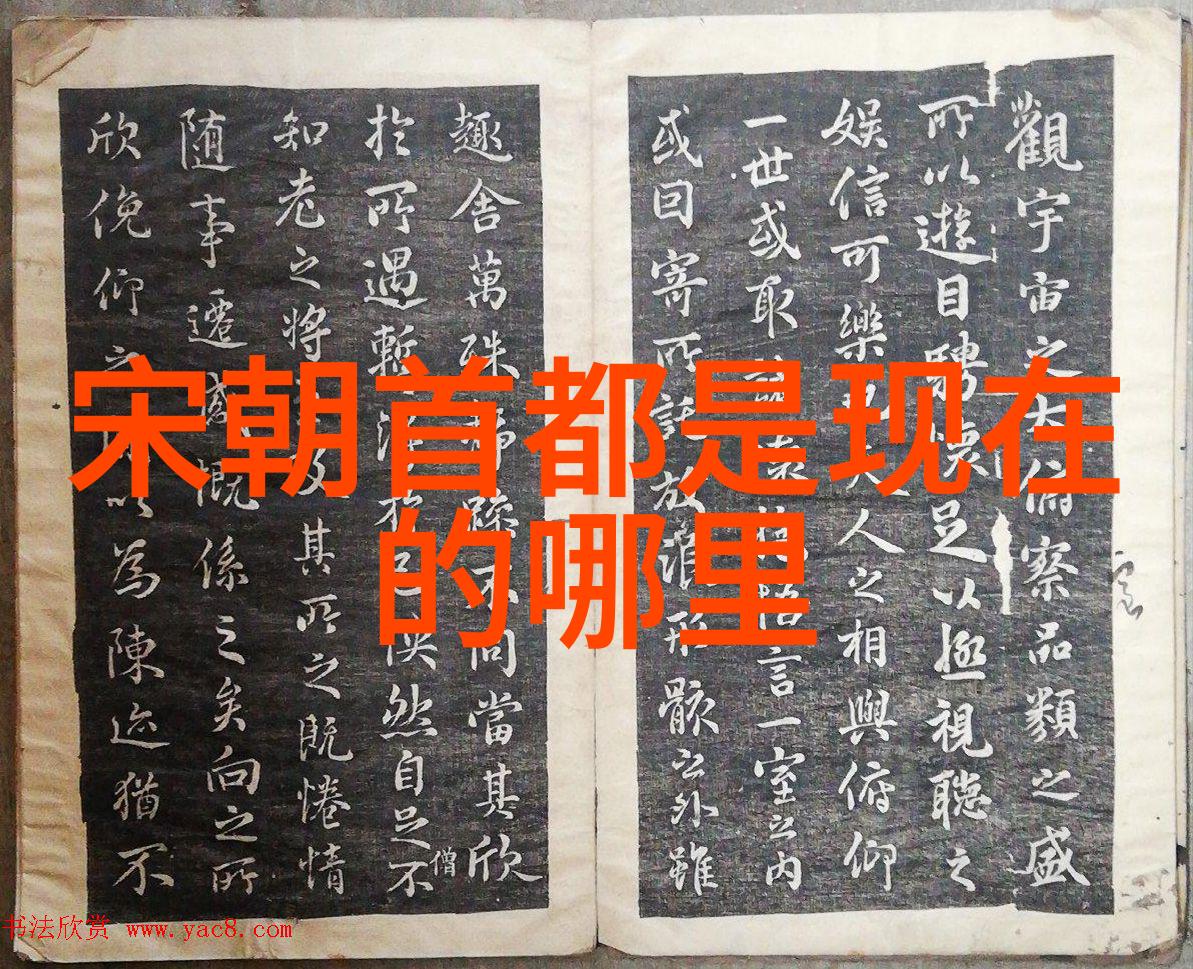 宋朝首都是现在
的哪里
觀宇宙之大俯察品類之盛
所以遊目騁懷足以極視聽之
娛信可樂也夫人之相與俯仰
一世或取諸懷抱悟言一室之内
或因寄所託放浪形骸之外雖
趣舍萬殊靜躁不同當其欣
於所遇暫得於己快然自足不
僧
知老之將至及其所之既惓情
随事遷感慨係之矣向之所
欣俛仰之間以為陳迹猶不
书法欣赏 www.yac8.com